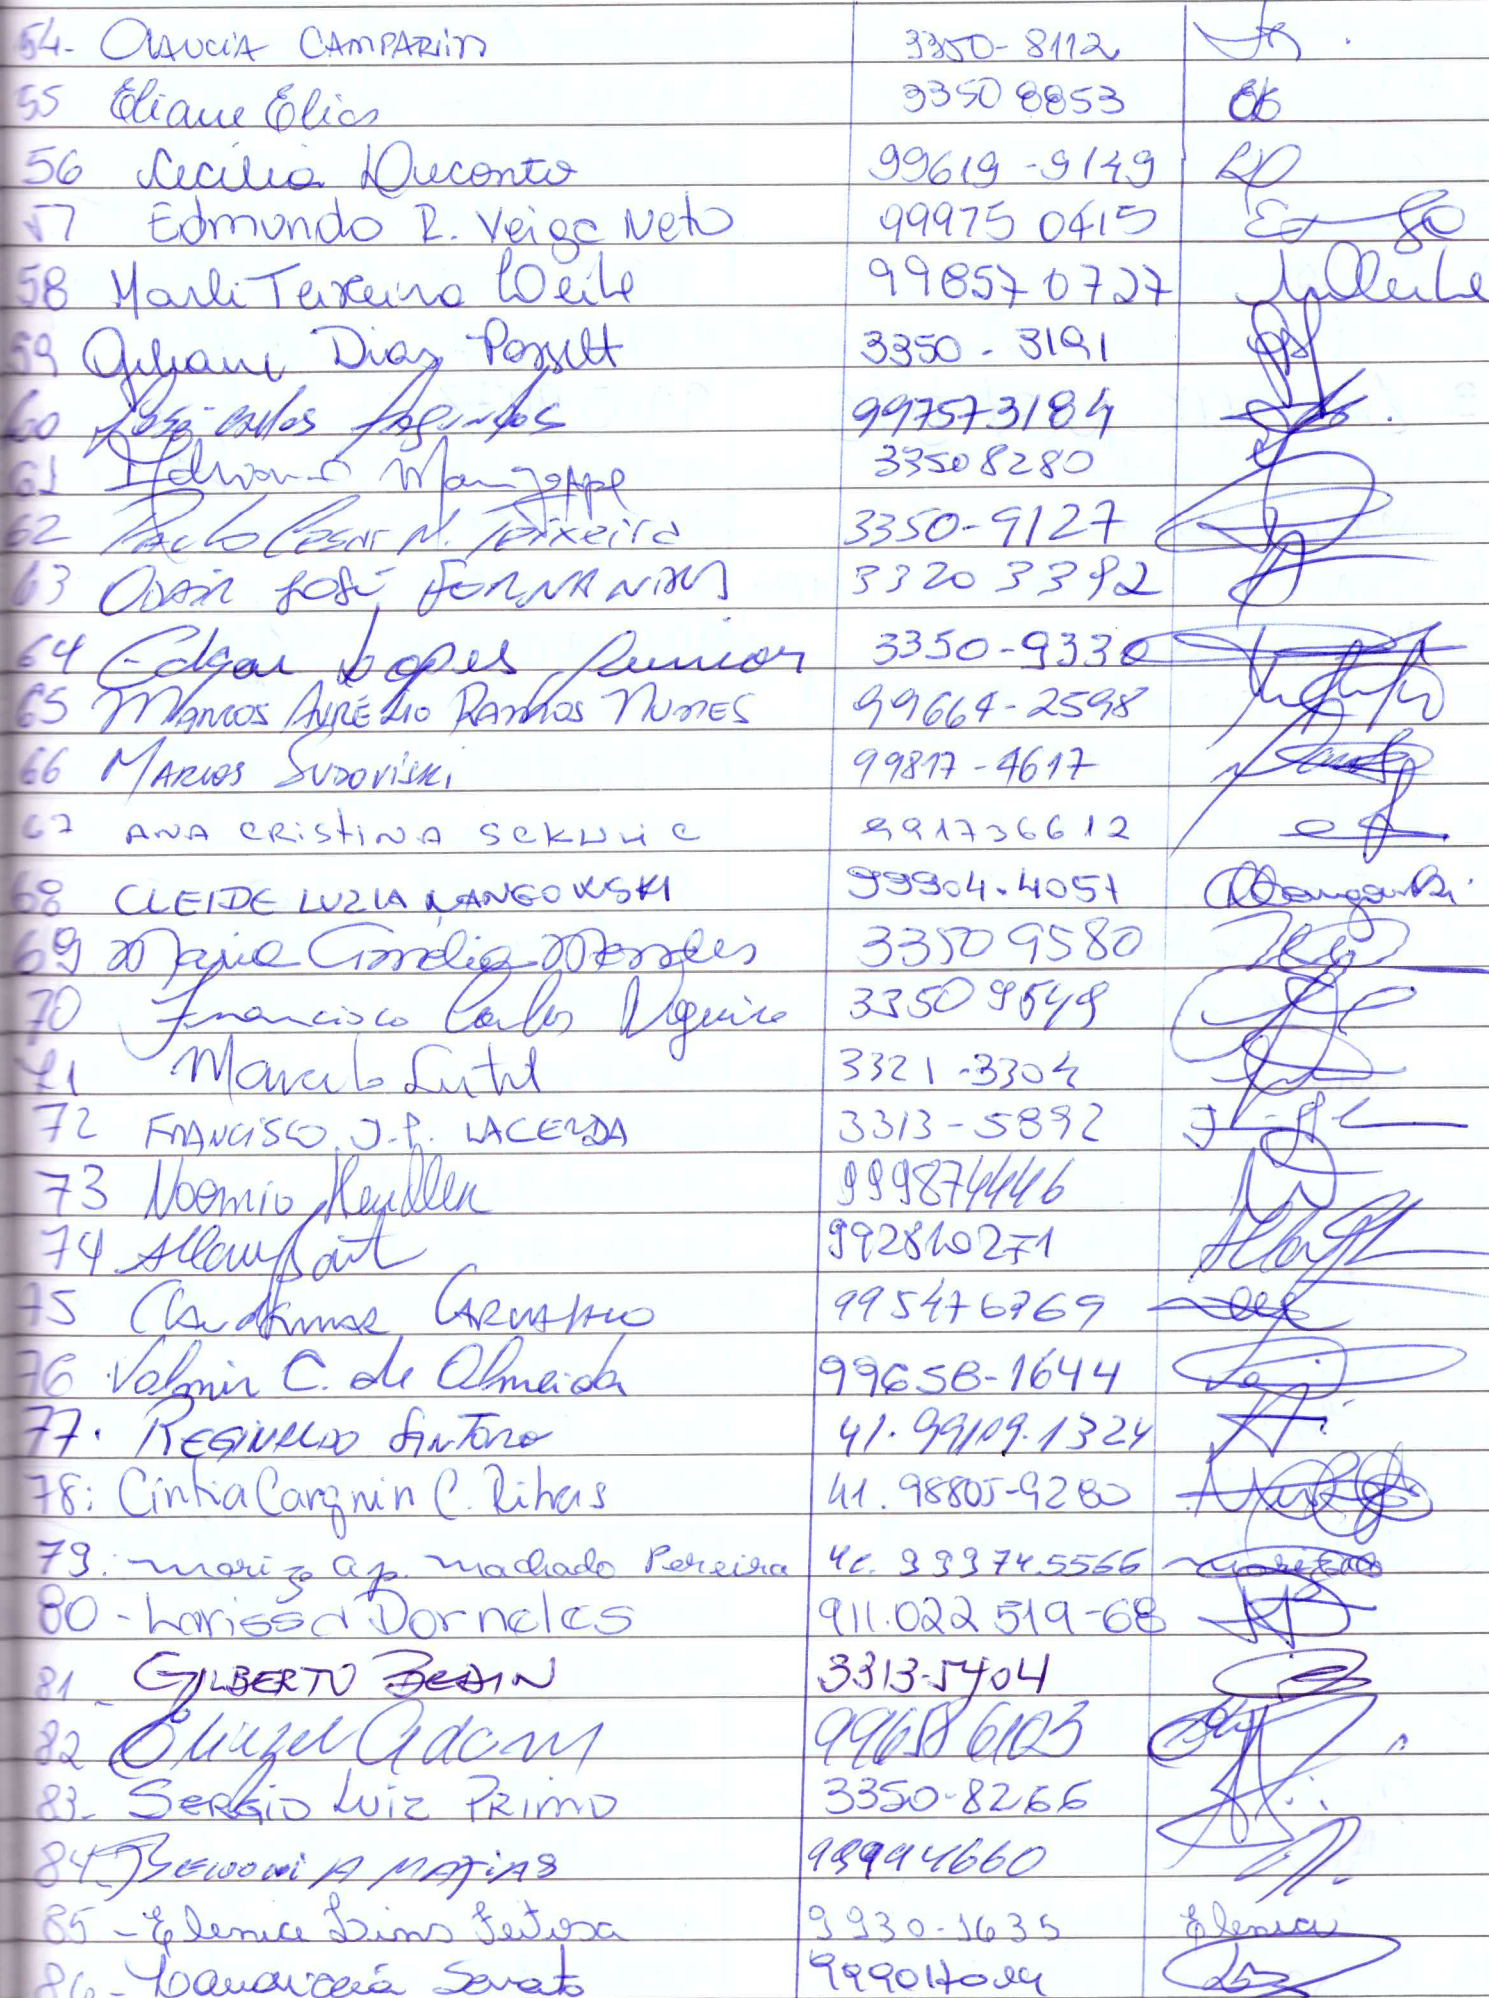 54- CAMPARIM 3350-8112
55 Eliane Elias 3350 8853
56 Cecilia Duconto 99619-9149
57 Edmundo R. Veiga Neto 99975 0415
58 Marli Teixeira Leite 99857 0727
59 Dias Posselt 3350-3191
60 José Carlos Fagundes 997573184
61 Adriano 33508280
62 Paulo Cesar M. Teixeira 3350-9127
63 ODAIR JOSÉ 3320 3392
64 Edgar Lopes Junior 3350-9330
65 MARCOS AURÉLIO RAMOS NUNES 99664-2598
66 MARCOS SUDOVISKI 99817-4617
67 ANA CRISTINA SEKULIC 991736612
68 CLEIDE LUZIA LANGOWSKI 99904.4057
69 Maria Mendes 3350 9580
70 Francisco Carlos Nogueira 3350 9549
71 Marcelo 3321-3304
72 FRANCISCO J.P. LACERDA 3313-5892
73 Noemia 999874446
74 992810271
75 CARVALHO 995476769
76 Valmir C. de Almeida 99658-1644
77. REGINALDO SANTORO 41.99109.1324
78: Cintia Cargnin C. Ribas 41.98805-9280
79. Mariza Ap. Machado Pereira 41. 999745566
80 - Larissa Dorneles 911.022 519-68
81 GILBERTO 3313-5404
82 Eliezel Adam 996586103
83- SERGIO LUIZ PRIMO 3350-8266
84 A MATIAS 99994660
85 - Elenice Lins Feitosa 9930-1635 Elenice
86 -